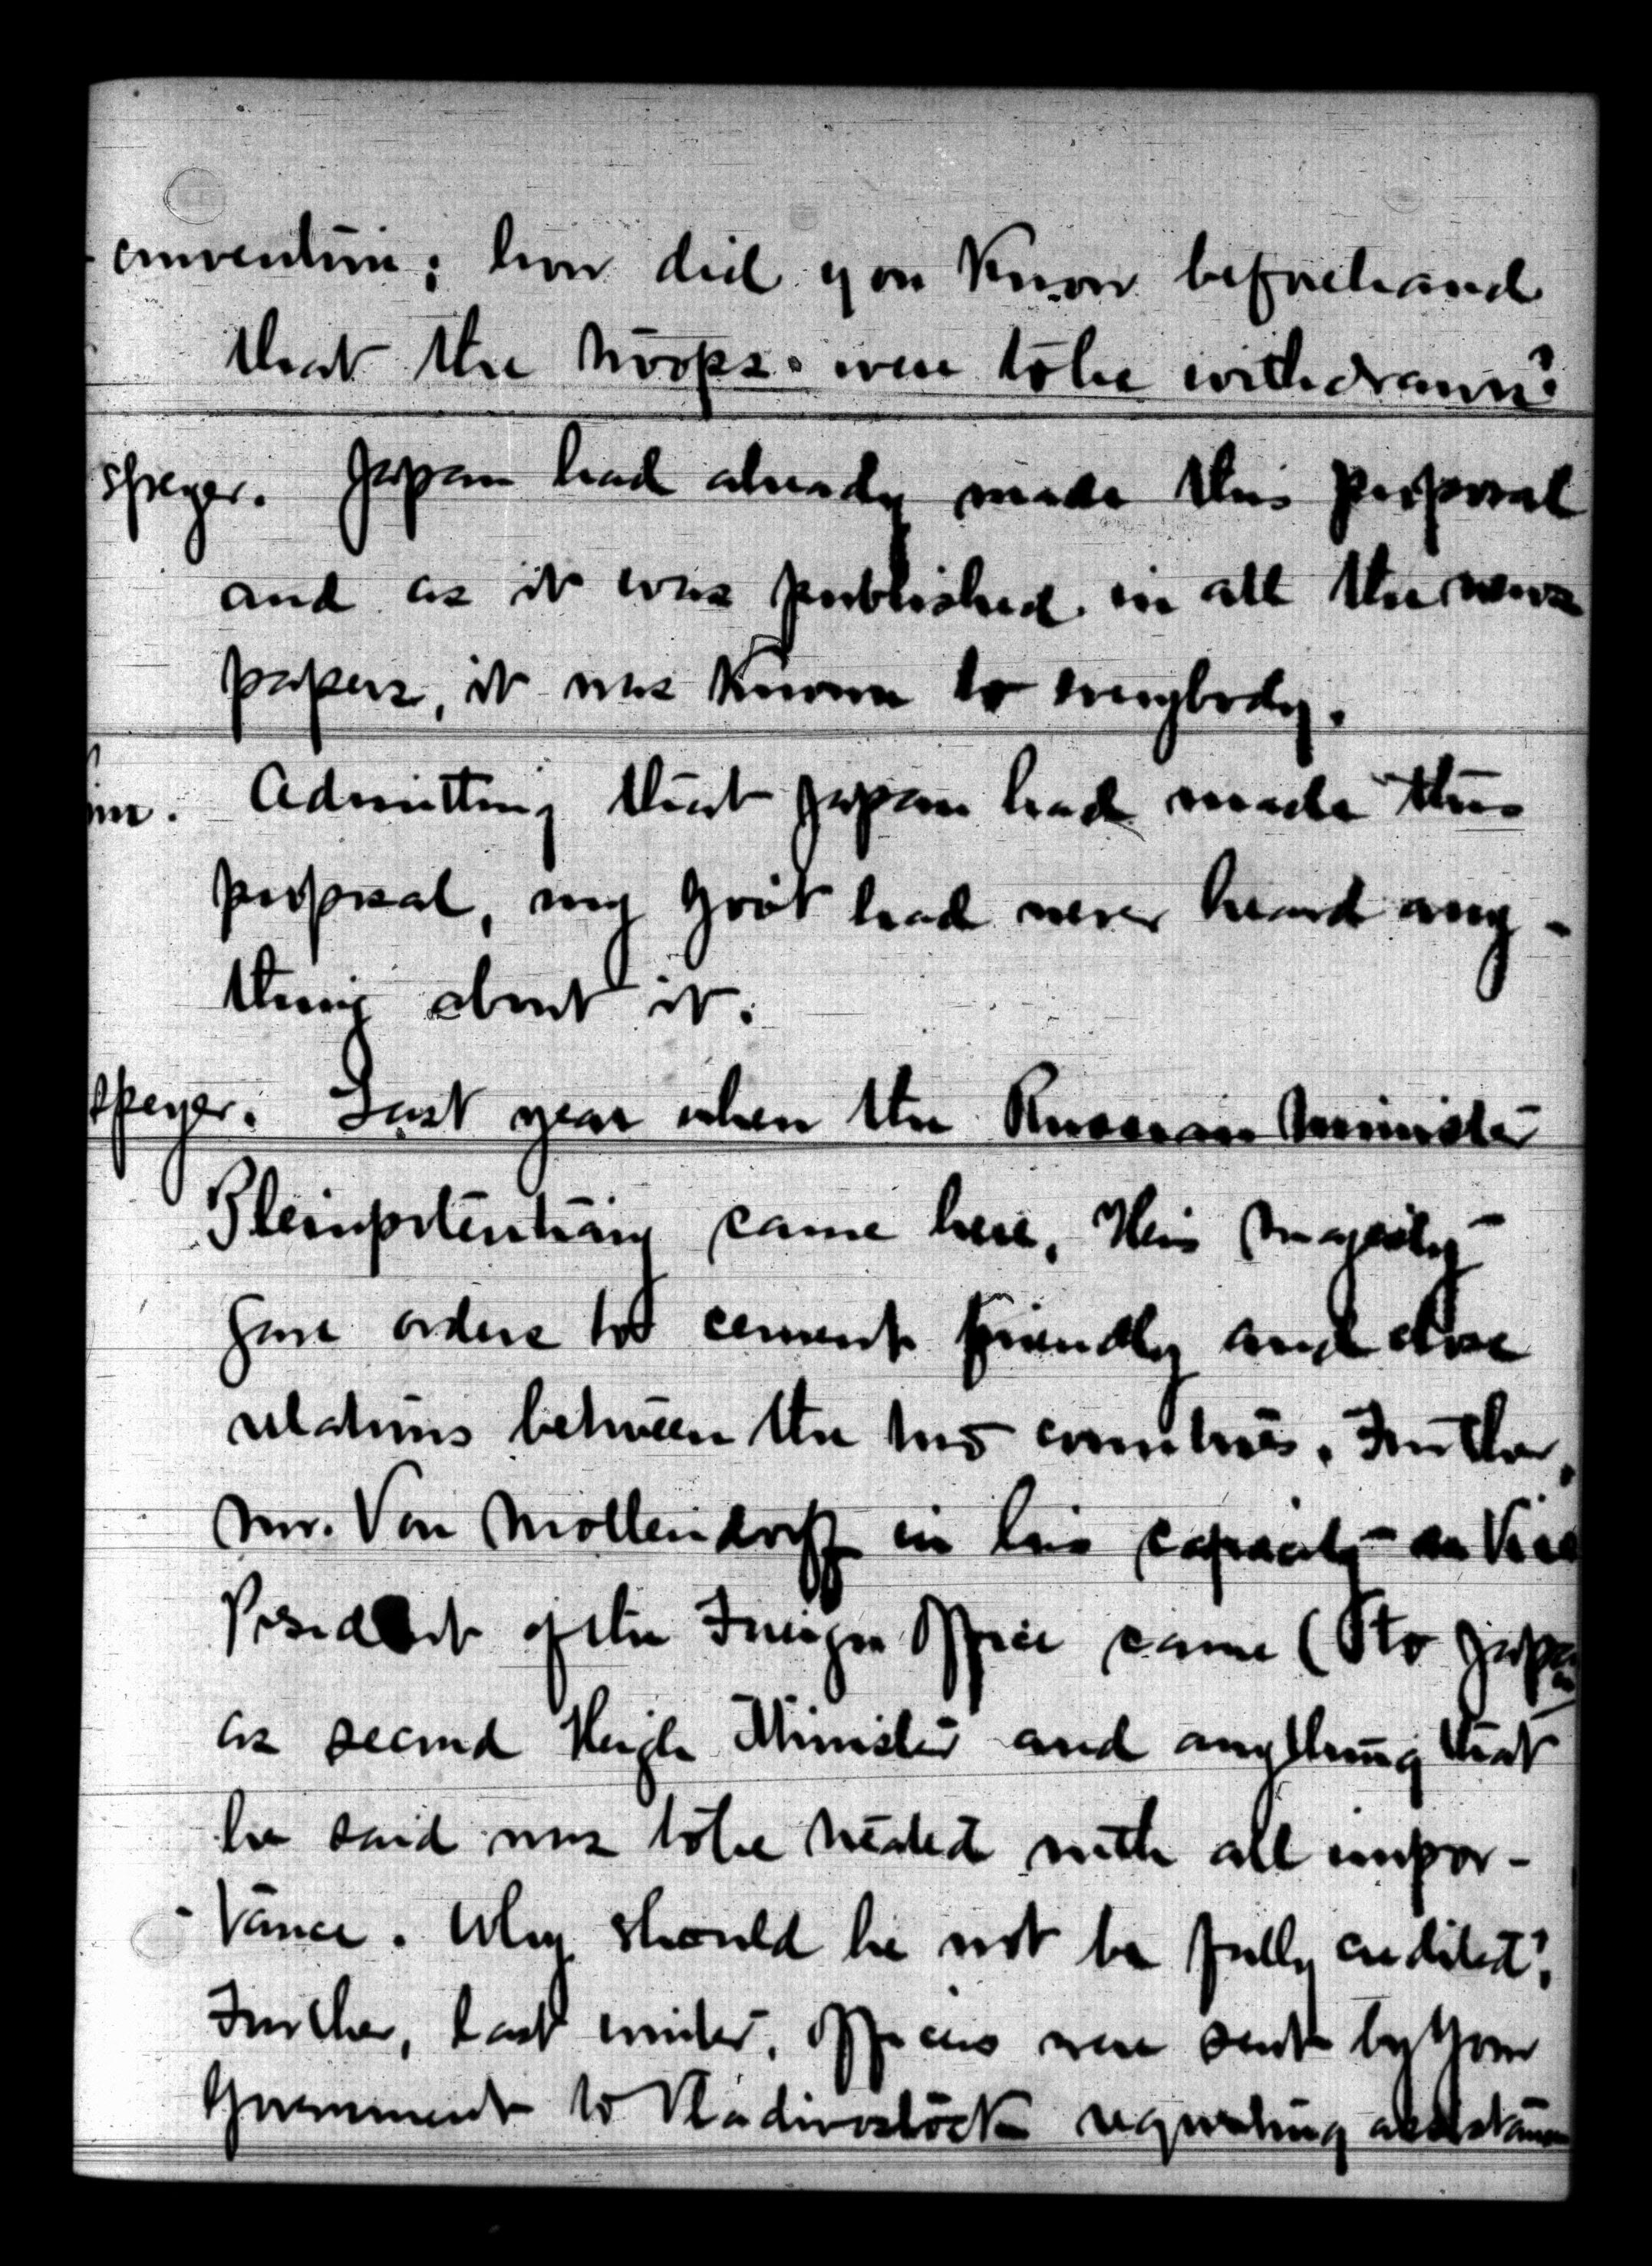 convention; how did you know beforehand
that the troops were to be withdrawn?
Speyer. Japan had already made this proposal
and as it was published in all the news
papers, it was known to everybody.
im. Admitting that Japan had made this
proposal, my Gov't had never heard any-
thing about it.
Speyer. Last year when the Russian Minister
Plenipotentiary came here, His Majesty
gave orders to cement friendly and close
relations between the two countries. Further,
Mr. Von Mollendorff in his capacity as Vice
President of the Foreign Office came (to Japan
as second High Minister and anything that
he said was to be treated with all impor-
tance. Why should he not be fully credited?
Further, last winter, officers were sent by your
Government to Vladivostock requesting assistance